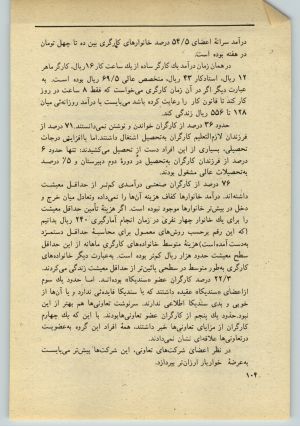 درآمد سرانهٔ اعضای ۵۴/۵ درصد خانوارهای کارگری بین ده تا چهل تومان
در هفته بوده است.
در همان زمان درآمد یک کارگر ساده از یک ساعت کار ۱۶ ریال، کارگر ماهر
۱۲ ریال، استادکار ۴۳ ریال، متخصص عالی ۶۹/۵ ریال بوده است. به
عبارت دیگر اگر در آن زمان کارگری می‌خواست که فقط ۸ ساعت در روز
کار کند تا قانون کار را رعایت کرده باشد می‌بایست با درآمد روزانه‌ئی میان
۱۲۸ تا ۵۵۶ ریال زندگی کند.
حدود ۳۶ درصد از کارگران خواندن و نوشتن نمی‌دانستند. ۷۱ درصد از
فرزندان لازم‌التعلیم کارگران به‌تحصیل اشتغال داشتند. اما با افزایش درجات
تحصیلی، بسیاری از این افراد دست از تحصیل می‌کشیدند؛ تنها حدود ۶
درصد از فرزندان کارگران به‌تحصیل در دورهٔ دوم دبیرستان و ۵٪ درصد
به‌تحصیلات عالی مشغول بودند.
۷۶ درصد از کارگران صنعتی درآمدی کم‌تر از حداقل معیشت
داشته‌اند. درآمد خانوارها کفاف هزینهٔ آن‌ها را نمی‌داده و تعادل میان خرج و
دخل در بیش‌تر خانوارها موجود نبوده است. اگر هزینهٔ تأمین حداقل معیشت
را برای یک خانوار چهار نفری در زمان انجام آمارگیری ۲۴۰ ریال بدانیم
(که این رقم برحسب روش‌های معمول برای محاسبهٔ حداقل دستمزد
به‌دست آمده‌است) هزینهٔ متوسط خانواده‌های کارگری ماهانه از این حداقل
سطح معیشت حدود هزار ریال کم‌تر بوده است. به‌عبارت دیگر خانواده‌های
کارگری به‌طور متوسط در سطحی پائین‌تر از حداقل معیشت زندگی می‌کردند.
۲۲/۳ درصد کارگران عضو «سندیکا» بوده‌اند. اما حدود یک سوم
ازاعضای «سندیکا» عقیده داشتند که یا سندیکا فایده‌ئی ندارد و یا آن‌ها از
خوبی و بدی سندیکا اطلاعی ندارند. سرنوشت تعاونی‌ها هم بهتر از این
نبود. حدود یک پنجم از کارگران عضو تعاونی‌ها بودند. با این که یک چهارم
کارگران از مزایای تعاونی‌ها خبر داشتند، همهٔ افراد این گروه به‌عضویت
درتعاونی‌ها علاقه‌ئی نشان نمی‌دادند.
در نظر اعضای شرکت‌های تعاونی، این شرکت‌ها بیش‌تر می‌بایست
به‌عرضهٔ خواربار ارزان‌تر بپردازد.
۱۰۴